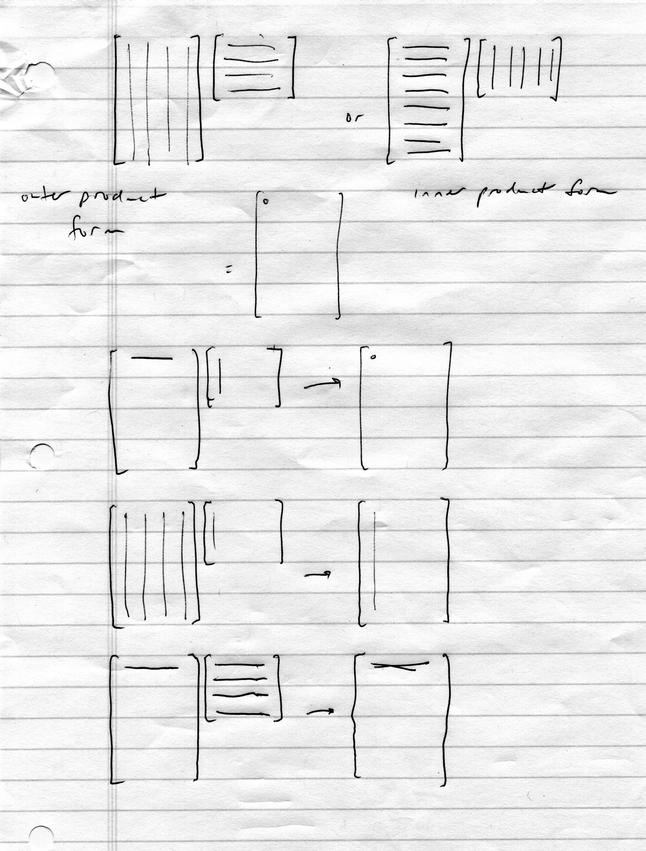 or
outer product
form
inner product form
=